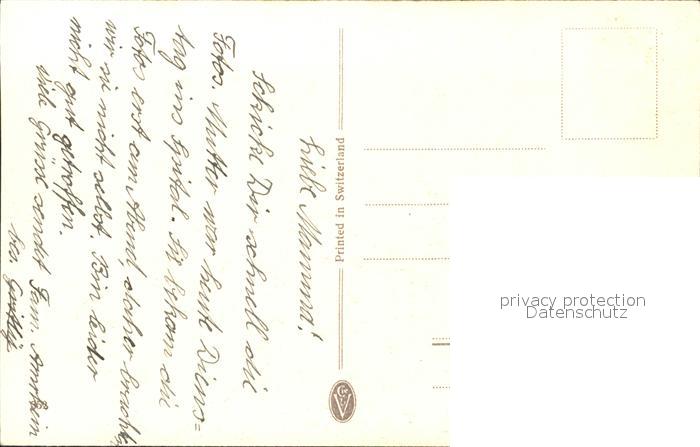 Liebe Mamma!
Schicke Dir schnell die
Fotos. Mutter war heute Diens=
tag ins Spital. Sie bekam die
Fotos erst am Abend, daher brachte
wir sie nicht selbst. Bin leider
nicht gut getroffen.
Viele Grüsse sendet Fam. Amrhein
Printed in Switzerland
privacy protection
Datenschutz